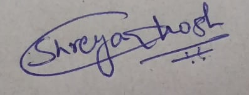 Shreya Ghosh